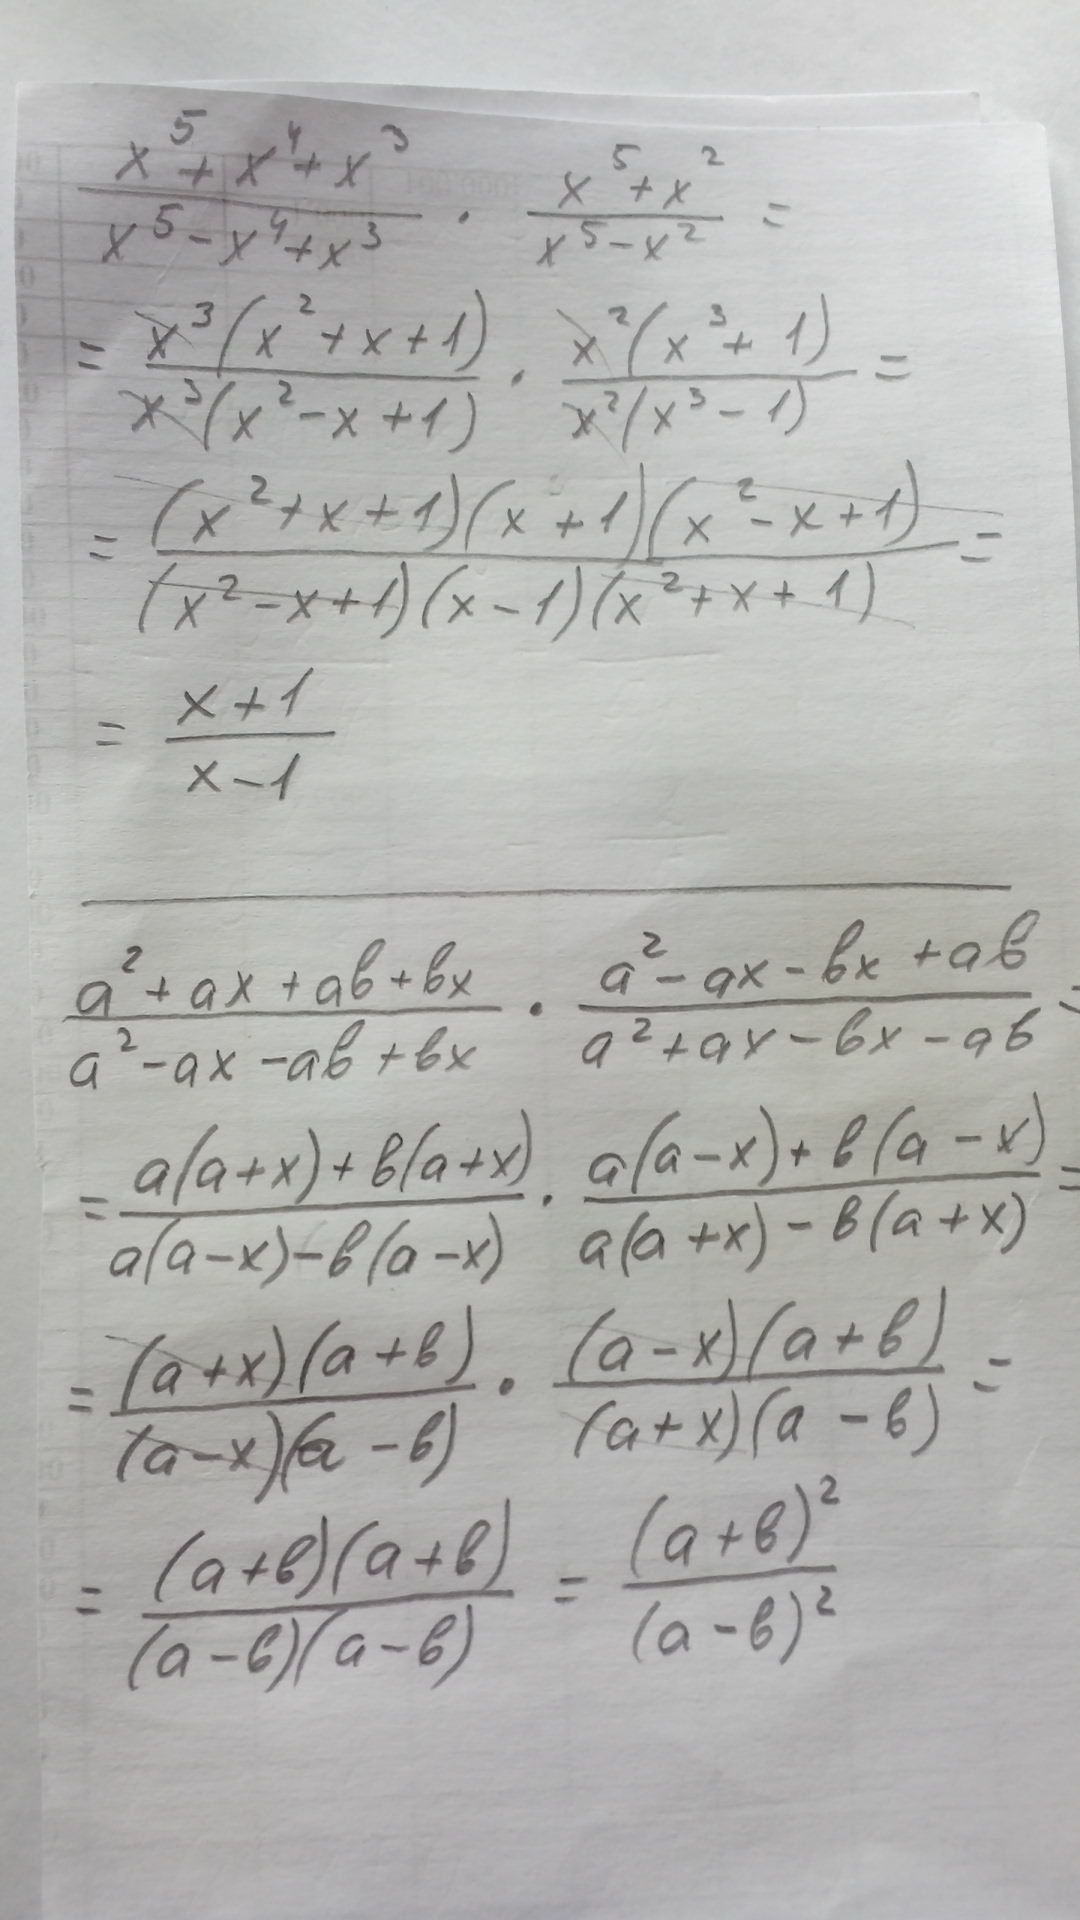 (x⁵ + x⁴ + x³)/(x⁵ - x⁴ + x³) · (x⁵ + x²)/(x⁵ - x²) =
= x³(x² + x + 1)/x³(x² - x + 1) · x²(x³ + 1)/x²(x³ - 1) =
= (x² + x + 1)(x + 1)(x² - x + 1)/(x² - x + 1)(x - 1)(x² + x + 1) =
= (x + 1)/(x - 1)
(a² + ax + aв + вx)/(a² - ax - aв + вx) · (a² - ax - вx + aв)/(a² + ax - вx - aв) =
= (a(a + x) + в(a + x))/(a(a - x) - в(a - x)) · (a(a - x) + в(a - x))/(a(a + x) - в(a + x)) =
= (a + x)(a + в)/(a - x)(a - в) · (a - x)(a + в)/(a + x)(a - в) =
= (a + в)(a + в)/(a - в)(a - в) = (a + в)²/(a - в)²